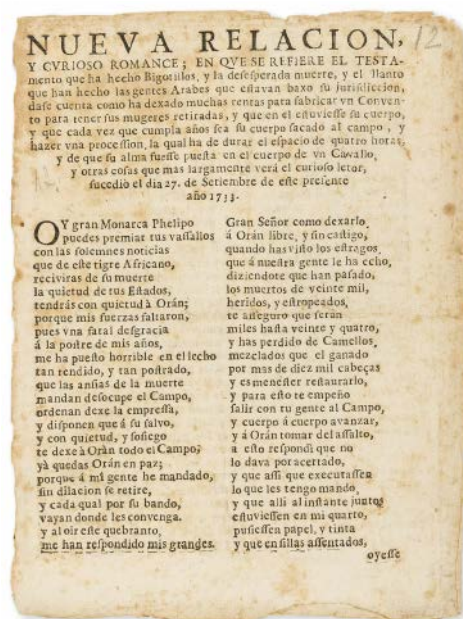 NUEVA RELACION,
12
Y CVRIOSO ROMANCE; EN QVE SE REFIERE EL TESTA-
mento que ha hecho Bigotillos, y la desesperada muerte, y el llanto
que han hecho las gentes Arabes que estavan baxo su jurisdiccion,
dase cuenta como ha dexado muchas rentas para fabricar vn Conven-
to para tener sus mugeres retiradas, y que en el estuviesse su cuerpo,
y que cada vez que cumpla años sea su cuerpo sacado al campo, y
hazer vna procession, la qual ha de durar el espacio de quatro horas,
y de que su alma fuesse puesta en el cuerpo de vn Cavallo,
y otras cosas que mas largamente verá el curioso letor,
sucedio el dia 27. de Setiembre de este presente
año 1733.
OY gran Monarca Phelipo
puedes premiar tus vassallos
con las solemnes noticias
que de este tigre Africano,
reciviras de su muerte
la quietud de tus Estados,
tendrás con quietud à Orán;
porque mis fuerzas faltaron,
pues vna fatal desgracia
á la postre de mis años,
me ha puesto horrible en el lecho
tan rendido, y tan postrado,
que las ansias de la muerte
mandan desocupe el Campo,
ordenan dexe la empressa,
y disponen que á su salvo,
y con quietud, y sosiego
te dexe à Oràn todo el Campo;
yà quedas Orán en paz;
porque á mi gente he mandado,
sin dilacion se retire,
y cada qual por su bando,
vayan donde les convenga.
y al oir este quebranto,
me han respondido mis grandes.
Gran Señor como dexarlo
á Orán libre, y sin castigo,
quando has visto los estragos
que á nuestra gente le ha echo,
diziendote que han pasado,
los muertos de veinte mil,
heridos, y estropeados,
te asseguro que seràn
miles hasta veinte y quatro,
y has perdido de Camellos
mezclados que el ganado
por mas de diez mil cabeças
y es menester restaurarlo,
y para esto te empeño
salir con tu gente al Campo,
y cuerpo á cuerpo avanzar,
y á Orán tomar del assalto,
a esto respondi que no
lo dava por acertado,
y que assi que executassen
lo que les tengo mando,
y que alli al instante juntos
estuviessen en mi quarto,
pusiessen papel, y tinta
y que en sillas assentados,
oyesse